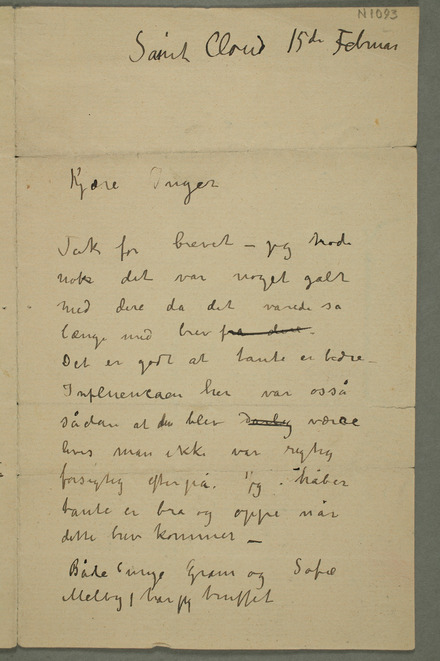 N 1093
Saint Cloud 15de Februar
Kjære Inger
Tak for brevet – jeg trode
nok det var noget galt
med dere da det varede så
længe med brev fra dere.
Det er godt at tante er bedre –
Influencaen her var osså
sådan at den blev Darlig værre
hvis man ikke var rigtig
forsigtig efterpå. Jeg håber
tante er bra og oppe når
dette brev kommer –
Både unge Gram og Sofie
Melby har jeg truffet